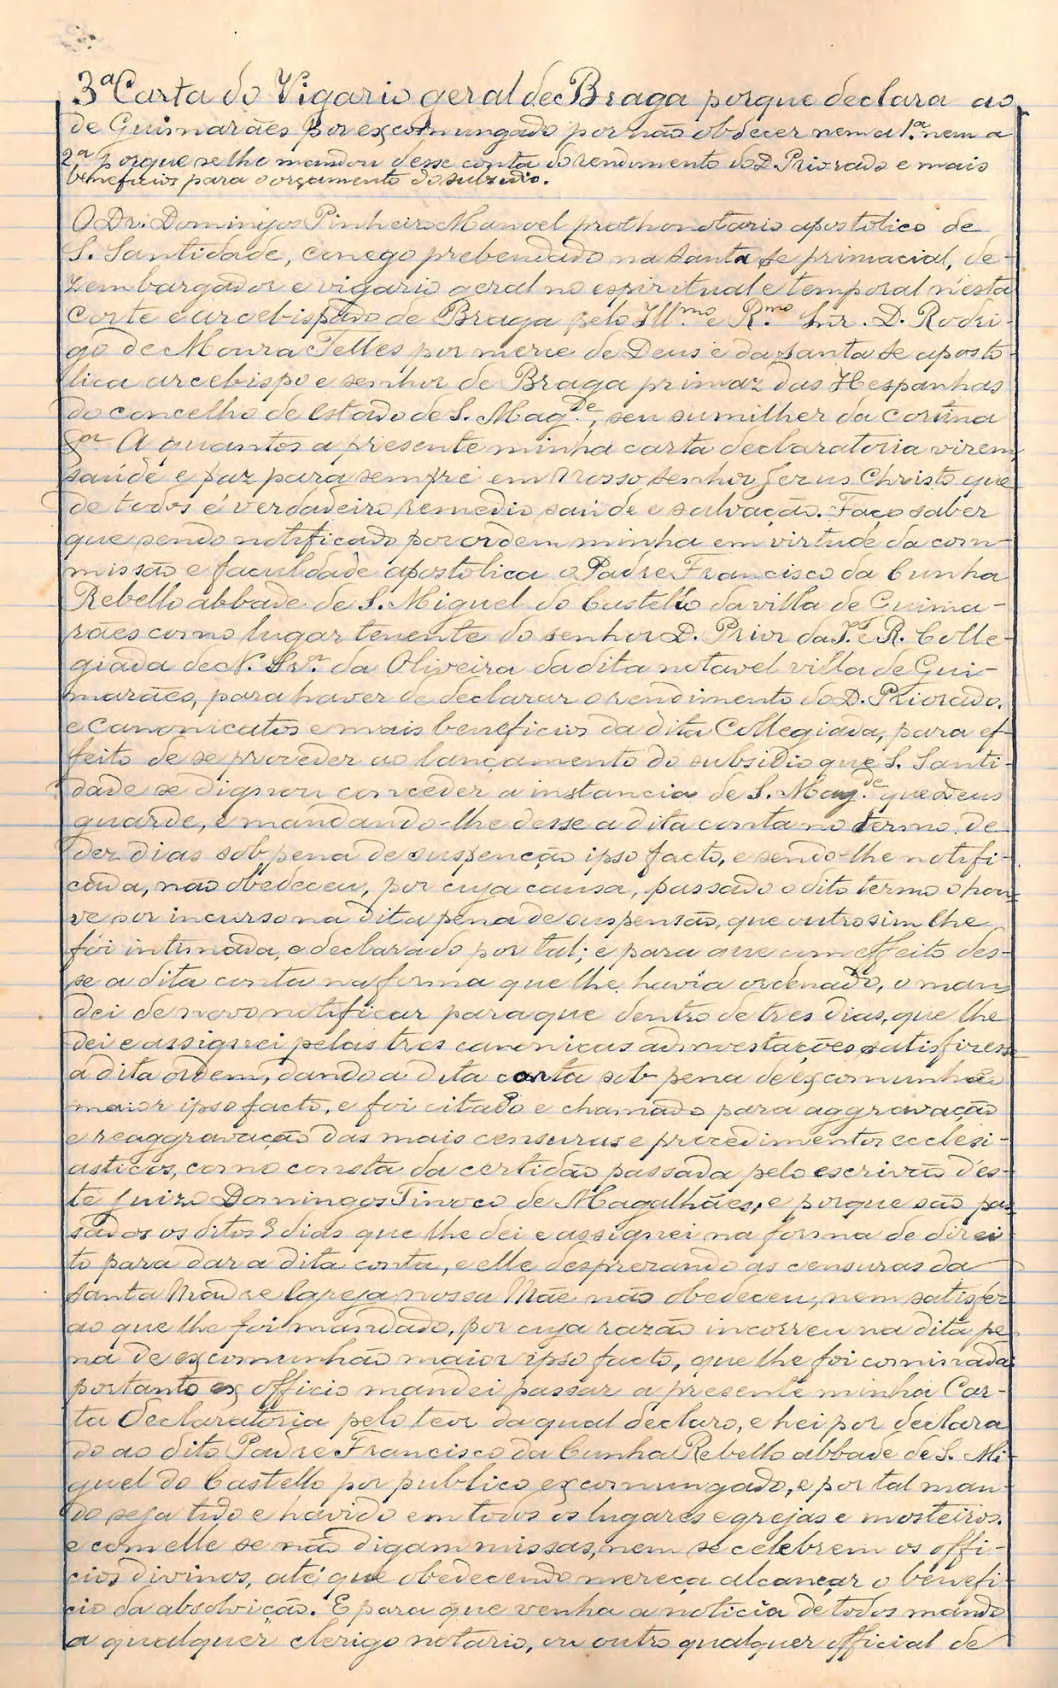 3ª Carta do Vigario geral de Braga porque declara ao
de Guimarães por excomungado por não obdecer nem a 1.ª nem a
2.ª porque se lhe mandou desse conta do rendimento do D. Priorado e mais
beneficios para o orçamento do subsidio.
O Dr. Domingos Pinheiro Manoel prothonotario apostolico de
S. Santidade, conego prebendado na Santa Se primacial, de-
zembargador e vigario geral no espiritual e temporal n'esta
corte e arcebispado de Braga pelo Ill.mo e R.mo Snr. D. Rodri-
go de Moura Telles por merce de Deus e da Santa Se aposto-
lica arcebispo e senhor de Braga primaz das Hespanhas
do concelho de Estado de S. Mag.de, seu sumilher da cortina
A quantos a presente minha carta declaratoria virem,
saúde e paz para sempre em Nosso Senhor Jesus Christo que
de todos é verdadeiro remedio saúde e salvação. Faço saber
que sendo notificado por ordem minha em virtude da com-
missão e faculdade apostolica o Padre Francisco da Cunha
Rebello abbade de S. Miguel do Castello da villa de Guima-
rães como lugar tenente do senhor D. Prior da I. e R. Colle-
giada de N. Snr.ª da Oliveira da dita notavel villa de Gui-
marães, para haver de declarar o rendimento do D. Priorado,
e canonicatos e mais beneficios da dita Collegiada, para ef-
feito de se proveder ao lançamento do subsidio que S. Santi-
dade se dignou conceder a instancia de S. Mag.de que Deus
guarde, e mandando-lhe desse a dita conta no termo de
dez dias sob pena de suspenção ipso facto, e sendo-lhe notifi-
cada, nao obedeceu, por cuja causa, passado o dito termo o hou-
ve por incurso na dita pena de suspensão, que outro sim lhe
foi intimada, e declarado por tal; e para que com effeito des-
se a dita conta na forma que lhe havia ordenado, o man-
dei de novo notificar para que dentro de tres dias, que lhe
dei e assignei pelas tres canonicas admoestações satisfizesse
a dita ordem, dando a dita conta sob pena de excomunhão
maior ipso facto, e foi citado e chamado para aggravação
e reaggravação das mais censuras e procedimentos ecclesi-
asticos, como consta da certidão passada pelo escrivão d'es-
te Juizo Domingos Tinoco de Magalhães, e porque são pas-
sados os ditos 3 dias que lhe dei e assignei na forma de direi-
to para dar a dita conta, e elle desprezando as censuras da
Santa Madre Igreja nossa Mãe não obedeceu, nem satisfez
ao que lhe foi mandado, por cuja razão incorreu na dita pe-
na de excomunhão maior ipso facto, que lhe foi cominada
portanto ex officio mandei passar a presente minha Car-
ta declaratoria pelo teor da qual declaro, e hei por declara
do ao dito Padre Francisco da Cunha Rebello abbade de S. Mi-
guel do Castello por publico excomungado, e por tal man-
do seja tido e havido em todos os lugares egrejas e mosteiros.
e com elle se não digam missas, nem se celebrem os offi-
cios divinos, até que obedecendo mereça alcançar o benefi-
cio da absolvição. E para que venha a noticia de todos mando
a qualquer clerigo notario, ou outro qualquer official de